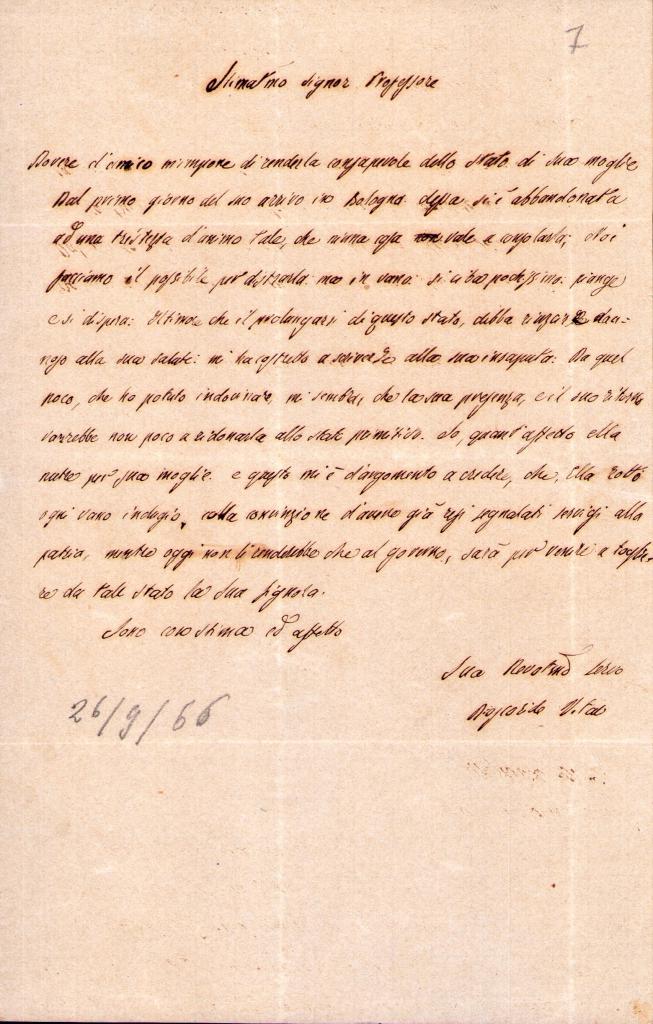 7
Stimatmo Signor Professore
Dovere d'amico m'impone di renderla consapevole dello stato di sua moglie
Dal primo giorno del suo arrivo in Bologna dessa si è abbandonata
ad una tristezza d'animo tale, che niuna cosa vale a consolarla; Noi
facciamo il possibile per distrarla: ma in vano: si ciba pochissimo: piange
e si dispera: Il timore che il prolungarsi di questo stato, debba dan-
no alla sua salute: mi ha costretto a scrivere alla sua insaputa: Da quel
poco, che ho potuto indovinare, mi sembra, che la sua presenza, e il suo ritorno
varrebbe non poco a ridonarla allo stato primitivo. So, quant'affetto ella
nutre per sua moglie. e questo mi è d'argomento a credere, che, Ella rotto
ogni vano indugio, colla convinzione d'avere già resi segnalati servigi alla
patria, mentre oggi non li renderebbe che al governo, sarà per venire a toglie-
re da tale stato la Sua Signora.
Sono con stima ed affetto
Suo Devotmo Servo
Vitali
26/9/66